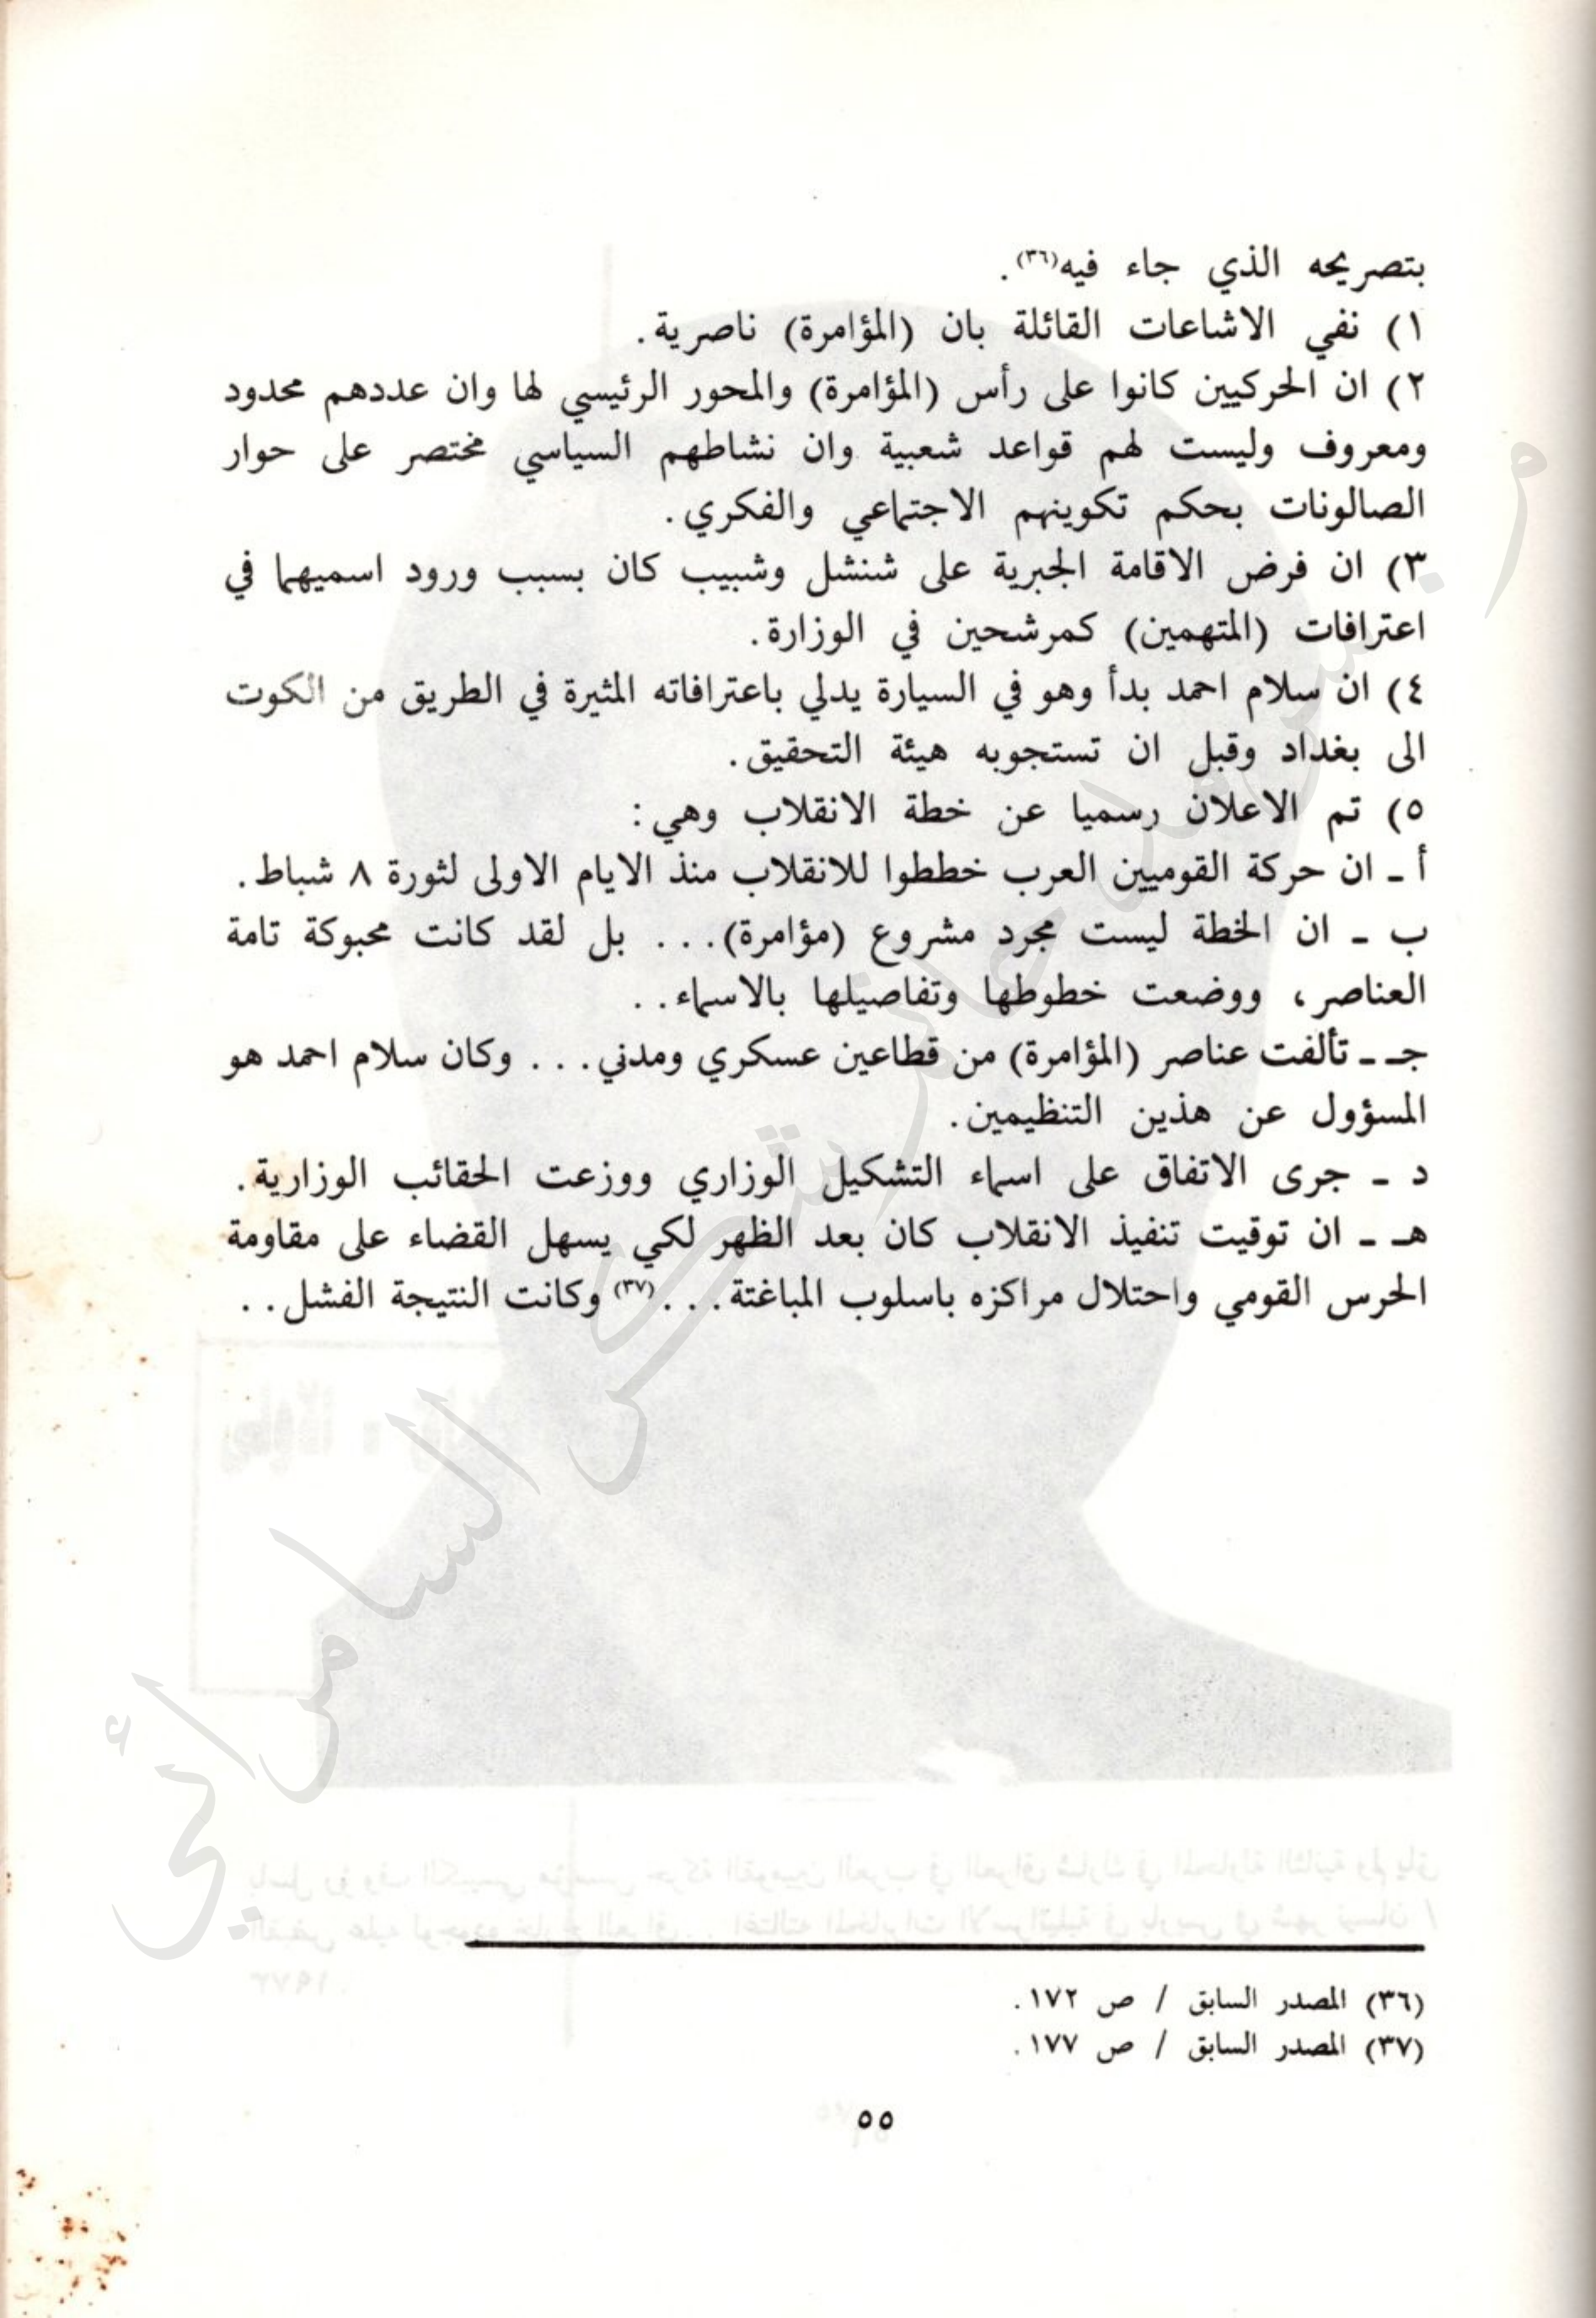 بتصريحه الذي جاء فيه(٣٦).
١) نفي الاشاعات القائلة بان (المؤامرة) ناصرية.
٢) ان الحركيين كانوا على رأس (المؤامرة) والمحور الرئيسي لها وان عددهم محدود
ومعروف وليست لهم قواعد شعبية وان نشاطهم السياسي مختصر على حوار
الصالونات بحكم تكوينهم الاجتماعي والفكري.
٣) ان فرض الاقامة الجبرية على شنشل وشبيب كان بسبب ورود اسميهما في
اعترافات (المتهمين) كمرشحين في الوزارة.
٤) ان سلام احمد بدأ وهو في السيارة يدلي باعترافاته المثيرة في الطريق من الكوت
الى بغداد وقبل ان تستجوبه هيئة التحقيق.
٥) تم الاعلان رسميا عن خطة الانقلاب وهي:
أ ـ ان حركة القوميين العرب خططوا للانقلاب منذ الايام الاولى لثورة ٨ شباط.
ب ـ ان الخطة ليست مجرد مشروع (مؤامرة)... بل لقد كانت محبوكة تامة
العناصر، ووضعت خطوطها وتفاصيلها بالاسماء..
جـ ـ تألفت عناصر (المؤامرة) من قطاعين عسكري ومدني... وكان سلام احمد هو
المسؤول عن هذين التنظيمين.
د ـ جرى الاتفاق على اسماء التشكيل الوزاري ووزعت الحقائب الوزارية.
هـ ـ ان توقيت تنفيذ الانقلاب كان بعد الظهر لكي يسهل القضاء على مقاومة
الحرس القومي واحتلال مراكزه باسلوب المباغتة...(٣٧) وكانت النتيجة الفشل..
شكر السامرائي
(٣٦) المصدر السابق / ص ١٧٢.
(٣٧) المصدر السابق / ص ١٧٧.
٥٥